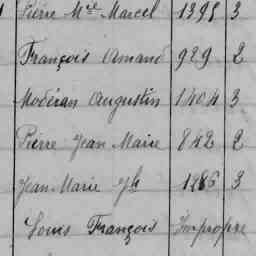 Pierre Mie Marcel 1395 3
François Amand 929 2
Modéran Augustin 1404 3
Pierre Jean Marie 842 2
Jean Marie Jh 1286 3
Louis François Impropre